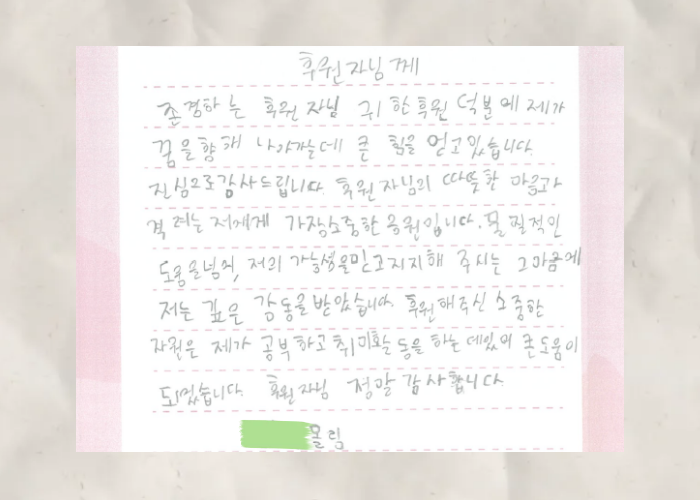 후원자님께
존경하는 후원자님 귀한후원 덕분에 제가
꿈을향해 나아가는데 큰 힘을 얻고있습니다
진심으로감사드립니다. 후원자님의 따뜻한 마음과
격려는저에게 가장소중한응원입니다. 물질적인
도움을넘어, 저의 가능성을믿고지지해 주시는 그마음에
저는 깊은 감동을받았습니다. 후원해주신 소중한
자원은 제가 공부하고취미활동을 하는데있어 큰도움이
되었습니다. 후원자님 정말감사합니다.
올림